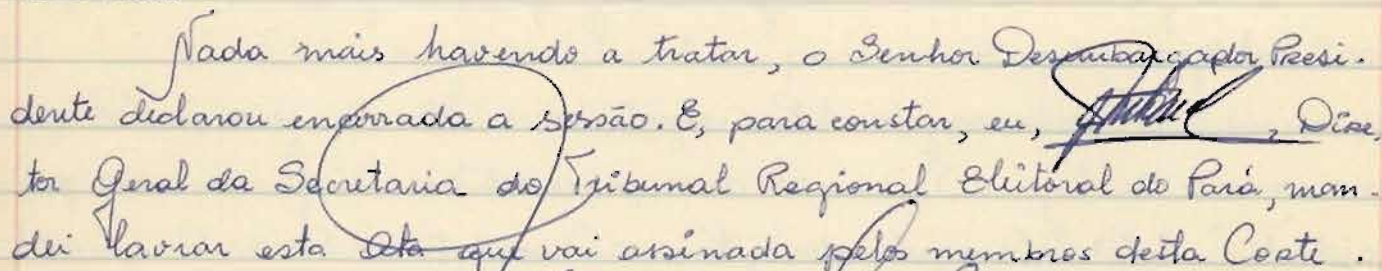 Nada mais havendo a tratar, o Senhor Desembargador Presi-
dente declarou encerrada a sessão. E, para constar, eu, , Dire
tor Geral da Secretaria do Tribunal Regional Eleitoral do Pará, man-
dei lavrar esta Ata que vai assinada pelos membros desta Corte.